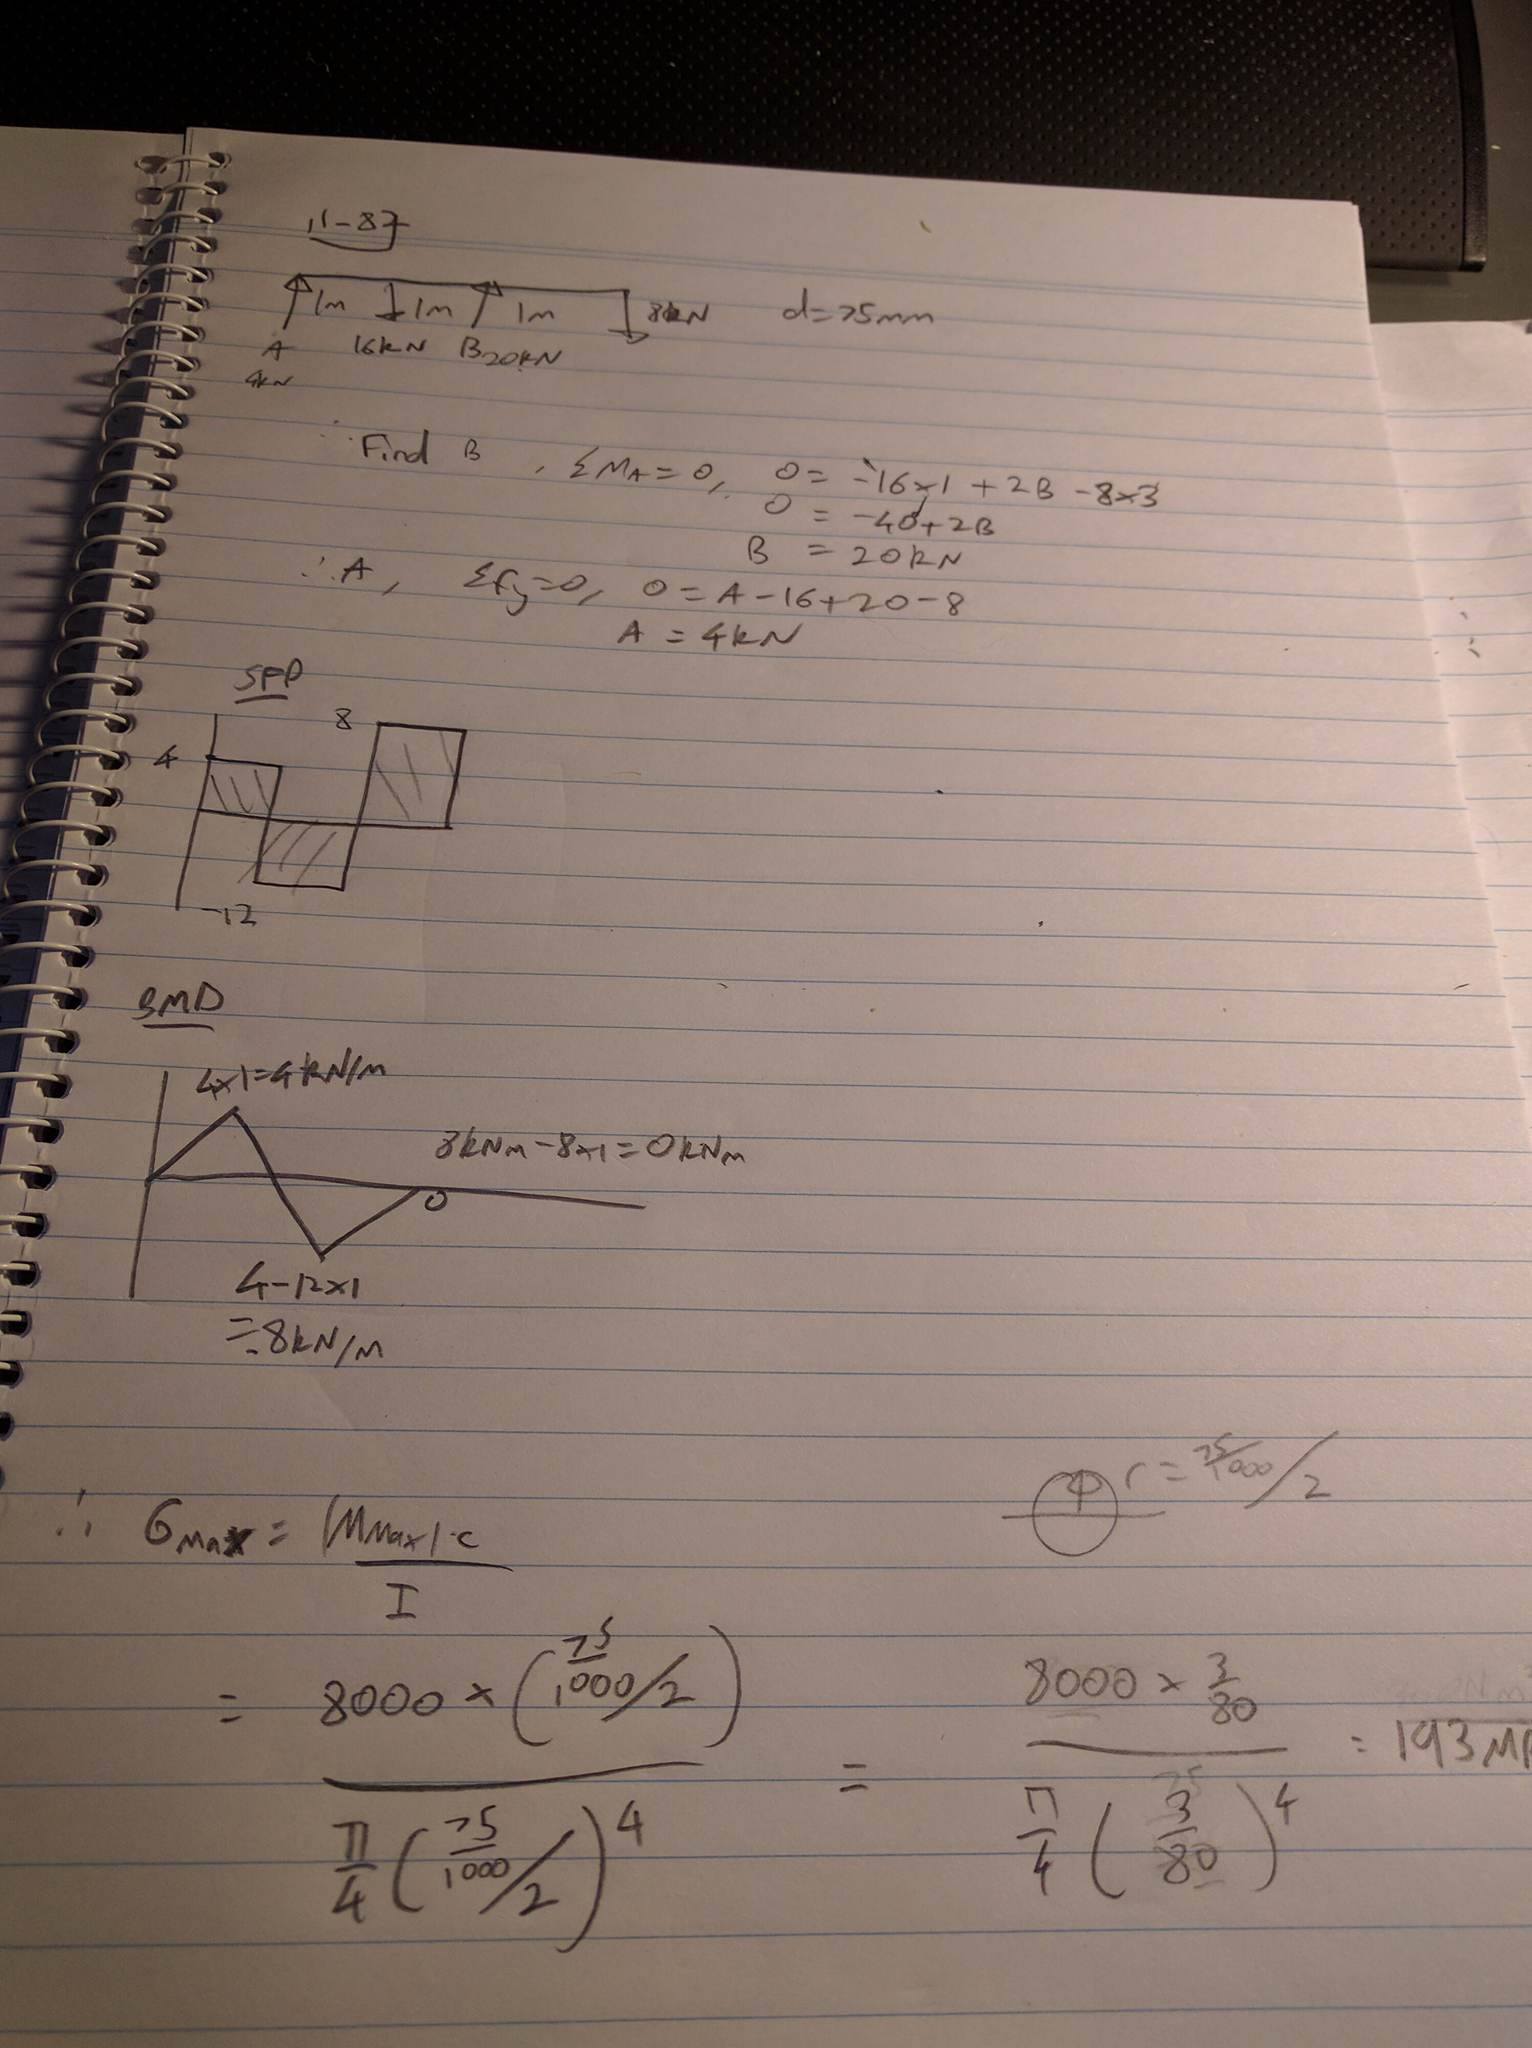 11-87
1m 1m 1m 8kN d=75mm
A 16kN B 20kN
4kN
Find B, ΣMA=0, 0= -16×1+2B-8×3
0 = -40+2B
B = 20kN
∴A, Σfy=0, 0=A-16+20-8
A = 4kN
SFD
8
4
-12
BMD
4×1=4kN/m
8kNm-8×1=0kNm
0
4-12×1
=-8kN/m
r=75/1000/2
∴ σMax = |MMax|·c / I
= 8000×(75/1000/2) / π/4(75/1000/2)^4 = 8000×3/80 / π/4(3/80)^4 = 193M